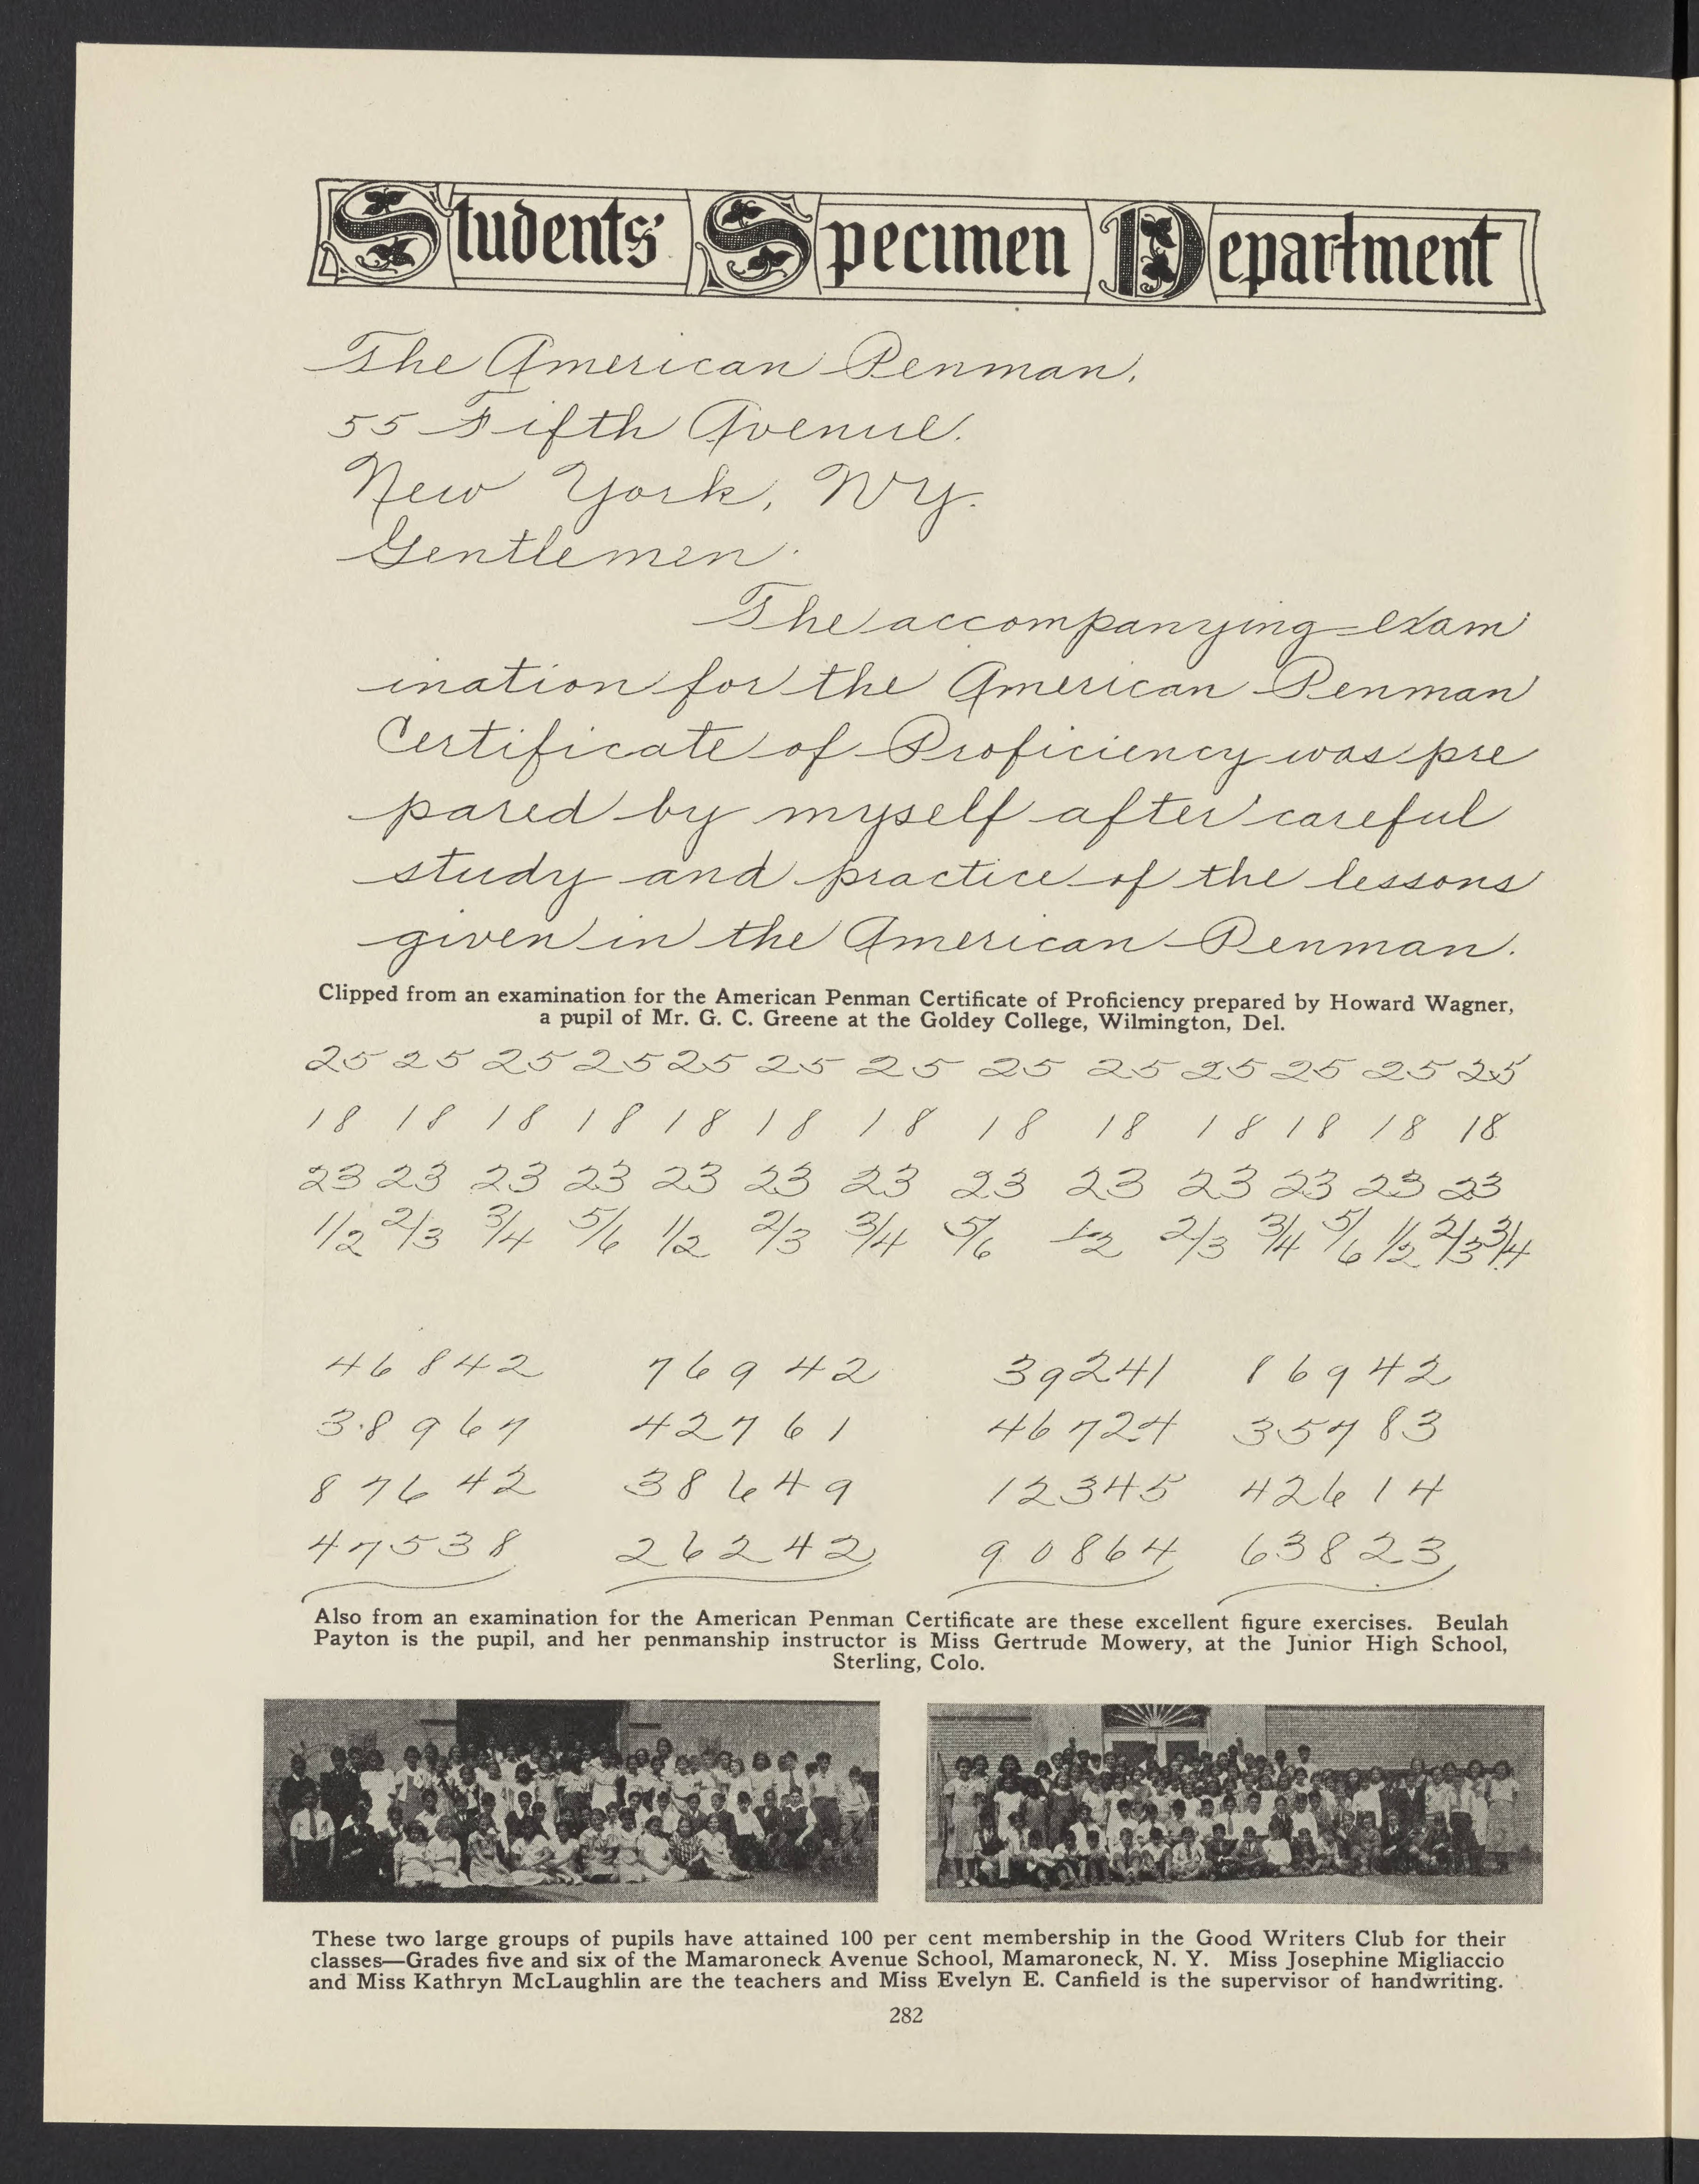 Students' Specimen Department
The American Penman.
55 Fifth Avenue.
New York, NY.
Gentlemen.
The accompanying exam
ination for the American Penman
Certificate of Proficiency was pre
pared by myself after careful
study and practice of the lessons
given in the American Penman.
Clipped from an examination for the American Penman Certificate of Proficiency prepared by Howard Wagner,
a pupil of Mr. G. C. Greene at the Goldey College, Wilmington, Del.
25 25 25 25 25 25 25 25 25 25 25 25 25
18 18 18 18 18 18 18 18 18 18 18 18 18
23 23 23 23 23 23 23 23 23 23 23 23 23
1/2 2/3 3/4 5/6 1/2 2/3 3/4 5/6 1/2 2/3 3/4 5/6 1/2 2/3 3/4
46842 76942 39241 86942
38967 42761 46724 35783
87642 38649 12345 42614
47538 26242 90864 63823
Also from an examination for the American Penman Certificate are these excellent figure exercises. Beulah
Payton is the pupil, and her penmanship instructor is Miss Gertrude Mowery, at the Junior High School,
Sterling, Colo.
These two large groups of pupils have attained 100 per cent membership in the Good Writers Club for their
classes—Grades five and six of the Mamaroneck Avenue School, Mamaroneck, N. Y. Miss Josephine Migliaccio
and Miss Kathryn McLaughlin are the teachers and Miss Evelyn E. Canfield is the supervisor of handwriting.
282